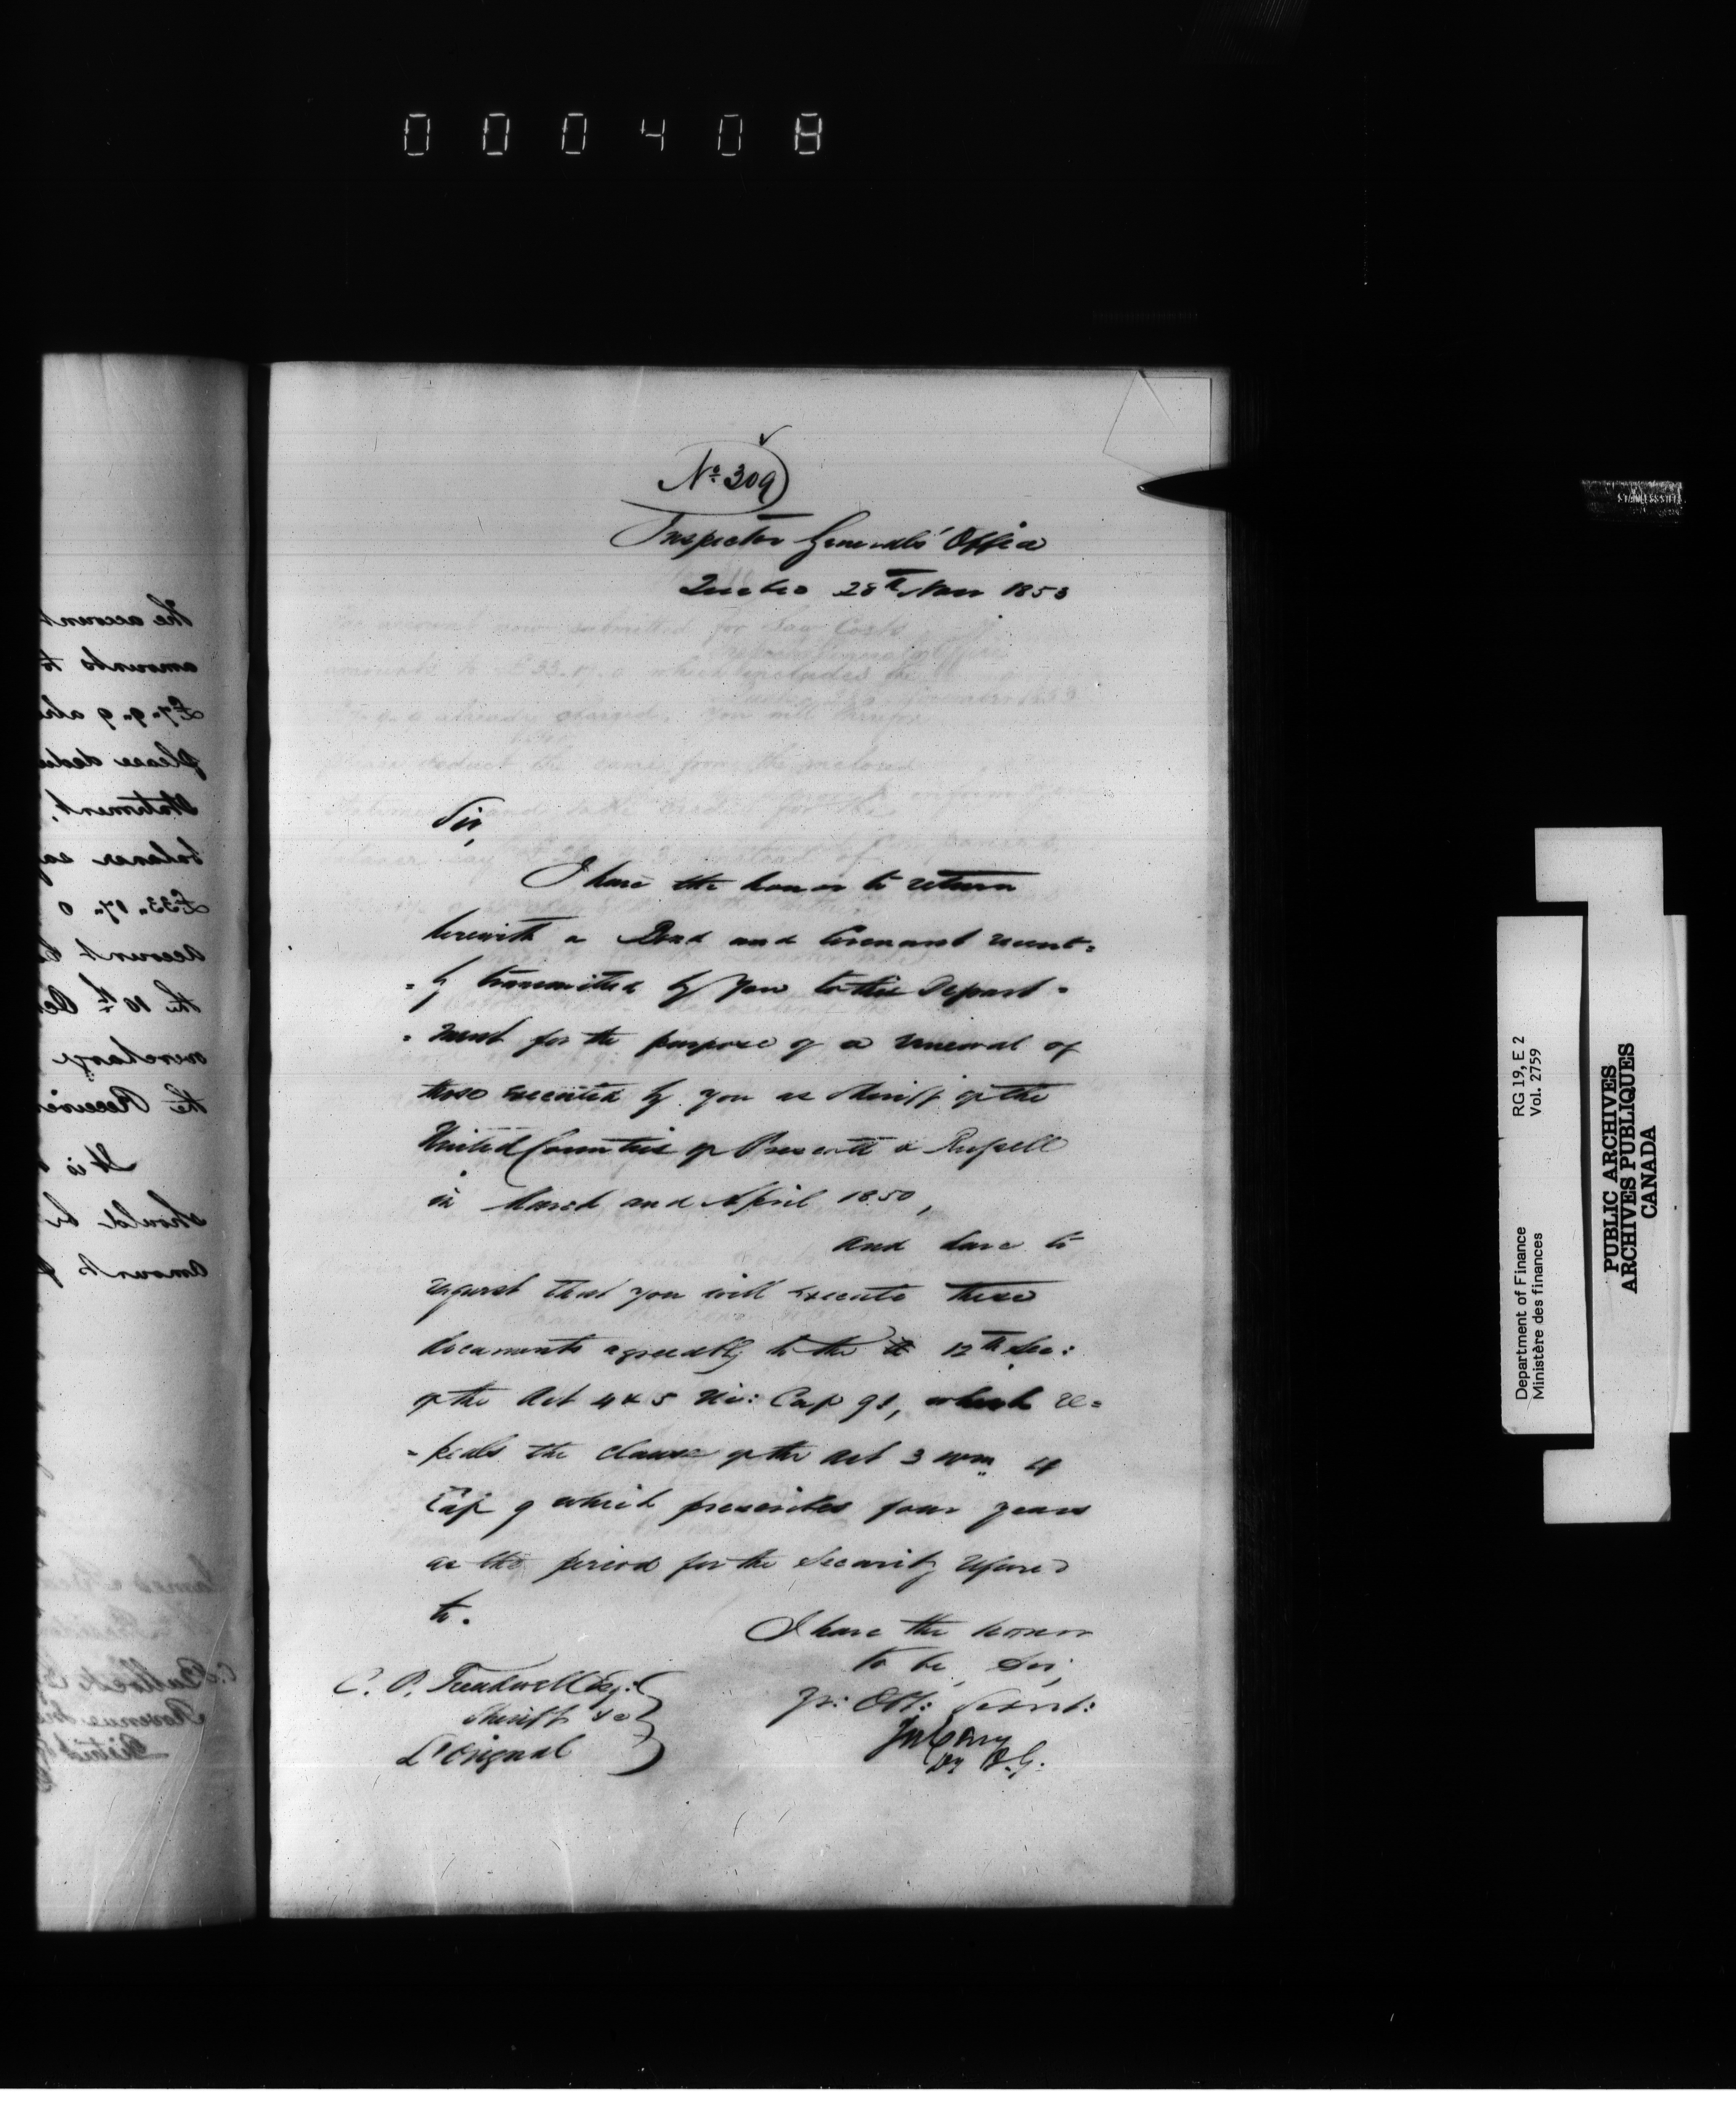 000408
No. 309
Inspector Generals' Office
Quebec 28th Nov 1853
Sir,
I have the honor to return
herewith a Bond and Covenant recent=
=ly transmitted by you to this Depart=
=ment for the purpose of a renewal of
those executed by you as Sheriff of the
United Counties of Prescott & Russell
in March and April 1850,
and have to
request that you will execute these
documents agreeably to the 12th Sec:
of the Act 4 & 5 Vic: Cap 91, which re=
=peals the clause of the Act 3 Wm 4
Cap 9 which prescribes four years
as the period for the Security referred
to.
I have the honor
to be, Sir,
Yr: Obt: Servt:
Jos Cary
Dy I.G.
C. P. Treadwell Esq:
Sheriff &c
L'Orignal
the account
amounts to
£7"9"9
please dedu
Statement,
balance say
£33"17"0
account
the 10th Dec
overcharge
the Receiver
It is
should be
amounts
STAINLESS STEEL
Department of Finance
Ministère des finances
RG 19, E 2
Vol. 2759
PUBLIC ARCHIVES
ARCHIVES PUBLIQUES
CANADA